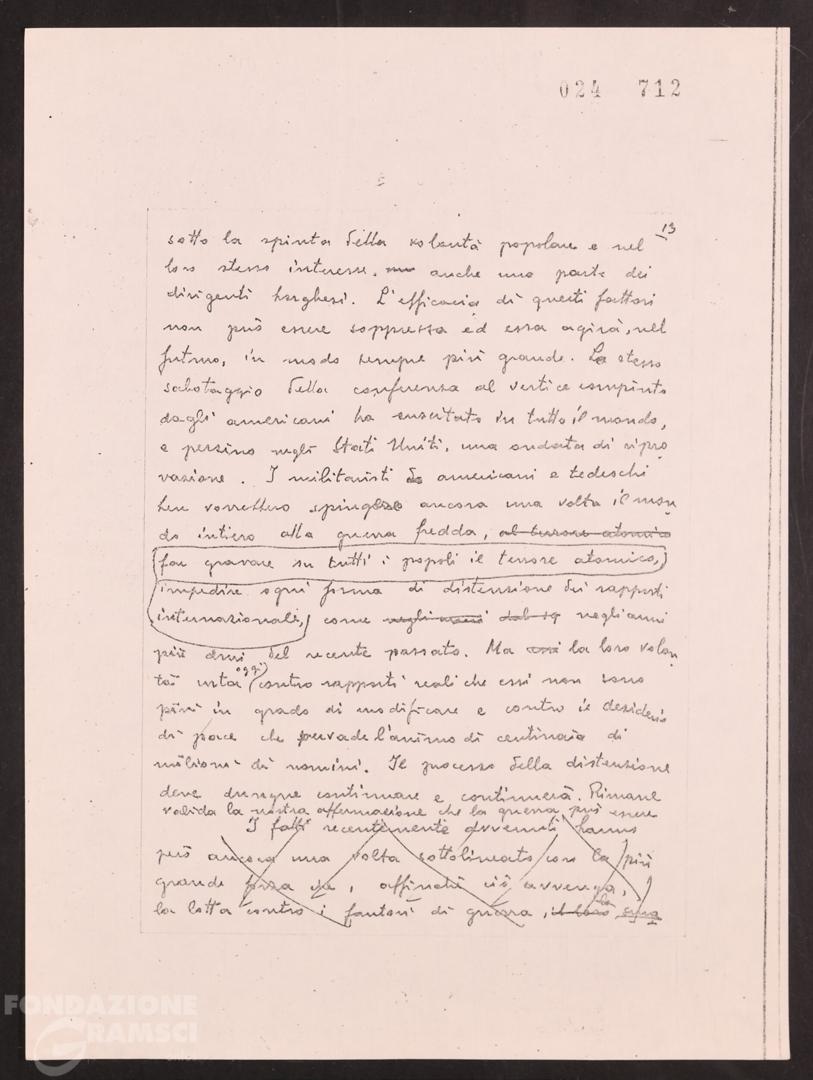 024 712
13
sotto la spinta della volontà popolare e nel
loro stesso interesse, anche una parte dei
dirigenti borghesi. L'efficacia di questi fattori
non può essere soppressa ed essa agirà, nel
futuro, in modo sempre più grande. Lo stesso
sabotaggio della conferenza al vertice compiuto
dagli americani ha suscitato in tutto il mondo,
e persino negli Stati Uniti, una ondata di ripro
vazione. I militaristi americani e tedeschi
ben vorrebbero spingere ancora una volta il mon
do intiero alla guerra fredda, al terrore atomico
far gravare su tutti i popoli il terrore atomico,
impedire ogni forma di distensione dei rapporti
internazionali, come negli anni dal negli anni
più duri del recente passato. Ma la loro volon
tà urta oggi contro rapporti reali che essi non sono
più in grado di modificare e contro il desiderio
di pace che pervade l'animo di centinaia di
milioni di uomini. Il processo della distensione
deve dunque continuare e continuerà. Rimane
valida la nostra affermazione che la guerra può essere
I fatti recentemente avvenuti hanno
però ancora una volta sottolineato con la più
grande forza che, affinché ciò avvenga,
la lotta contro i fautori di guerra, il loro la
FONDAZIONE
GRAMSCI